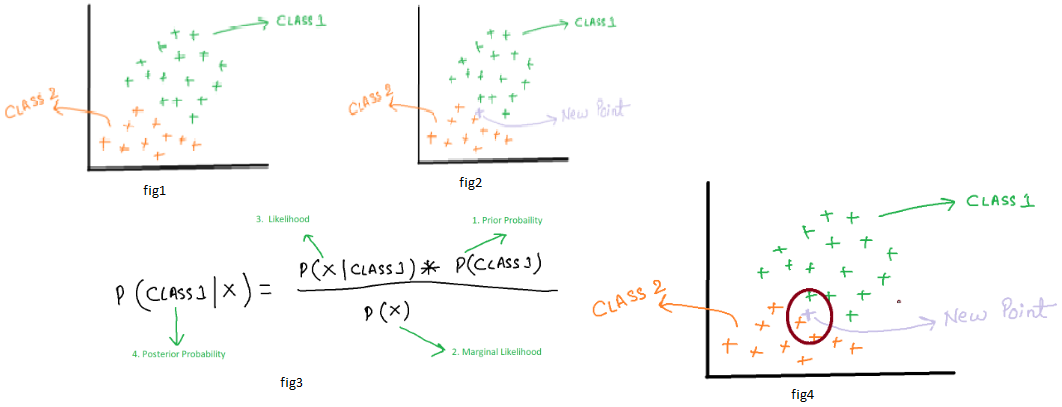 CLASS 1
CLASS 2
fig1
CLASS 1
CLASS 2
New Point
fig2
3. Likelihood
1. Prior Probaility
P(CLASS1|X) = P(X|CLASS1) * P(CLASS1)
P(X)
4. Posterior Probability
2. Marginal Likelihood
fig3
CLASS 1
CLASS 2
New Point
fig4